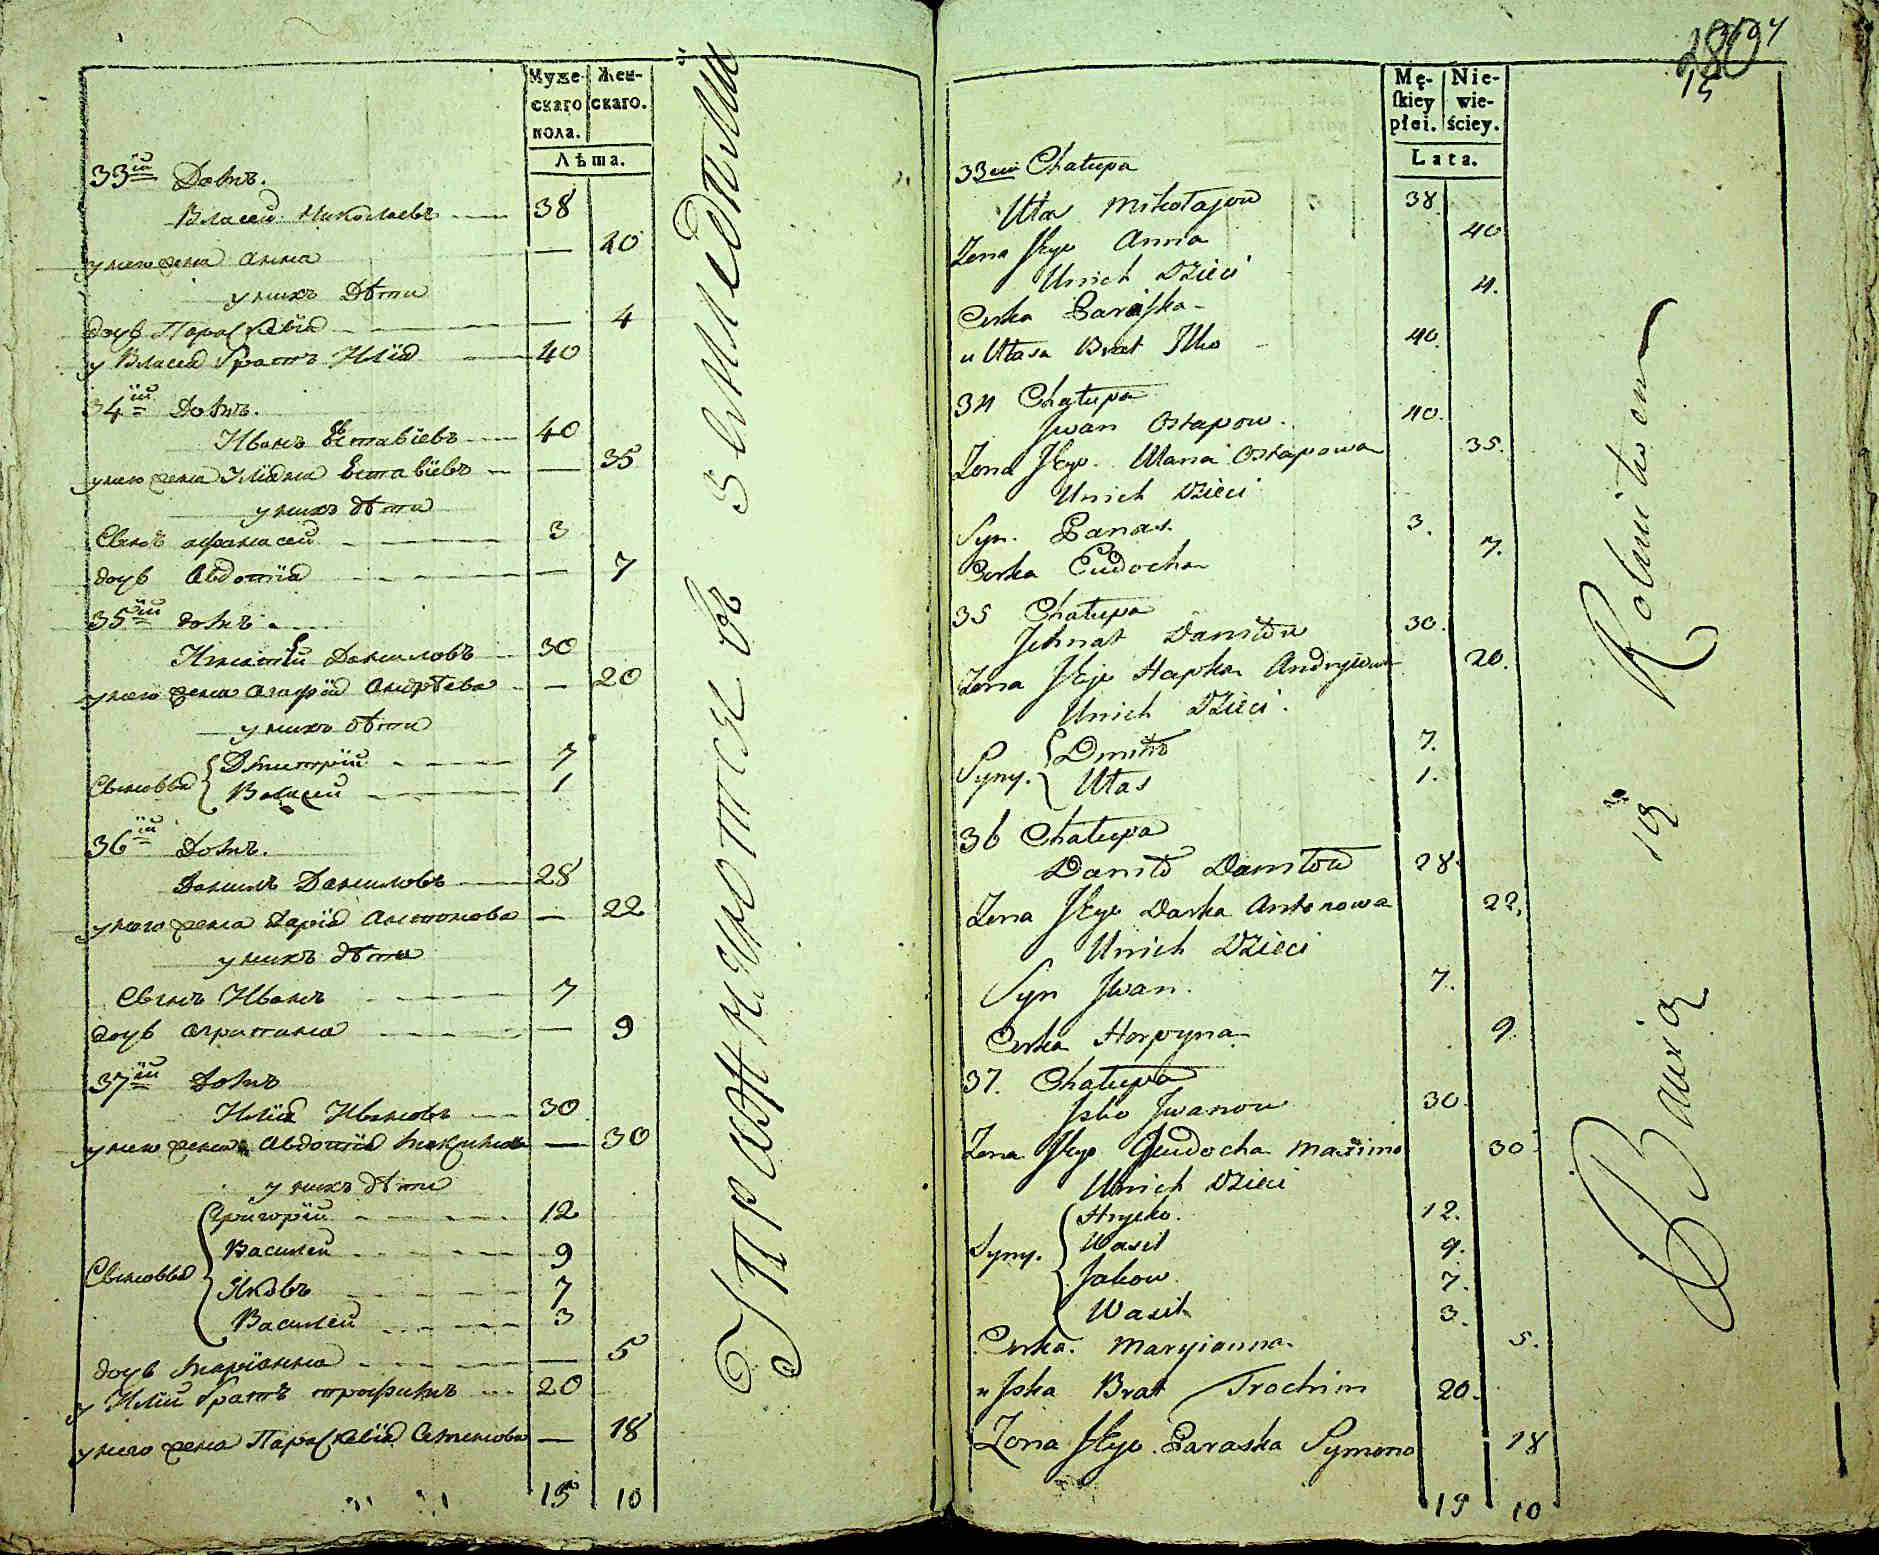 Муже-
скаго
пола.
Жен-
скаго.
Лѣта.
33ій Домъ.
Власей Николаевъ 38
у него жена Анна — 40
у нихъ Дѣти
дочь Параскевія — 4
у Власея братъ Илія 40
34ій Домъ.
Иванъ Естафіевъ 40
у него жена Уліана Естафіевъ — 35
у нихъ дѣти
Сынъ Афанасей 3
дочь Авдотія — 7
35ій домъ.
Игнатій Даниловъ 30
у него жена Агафія Андрѣева — 20
у нихъ дѣти
Сыновья { Дмитрій 7
Власей 1
36ій Домъ.
Данилъ Даниловъ 28
у него жена Дарія Антонова — 22
у нихъ дѣти
Сынъ Иванъ 7
дочь Агрипина — 9
37ій Домъ
Илія Ивановъ 30
у него жена Авдотія Максимова — 30
у нихъ дѣти
Сыновья { Григорій 12
Василей 9
Яковъ 7
Василей 3
дочь Маріанна — 5
у Иліи братъ Трофимъ 20
у него жена Параскевія Семенова — 18
15 10
Упражняются въ земледѣліи
Mę-
skiey
płci.
Nie-
wie-
ściey.
Lata.
33cia Chałupa
Ułas Mikołajow 38
Zona Jego Anna 40
Unich Dzieci
Corka Paraska 4.
u Ułasa Brat Ilko 40.
34 Chałupa
Jwan Ostapow. 40.
Zona Jego. Ulana Ostapowa 35.
Unich Dzieci
Syn. Panas 3.
Corka Eudocha 7.
35 Chałupa
Jchnat Daniłow 30.
Zona Jego Hapka Andryiowa 20.
Unich Dzieci.
Syny. { Dmitro 7.
Ułas 1.
36 Chałupa
Daniło Daniłow 28.
Zona Jego Darka Antonowa 22.
Unich Dzieci
Syn Jwan. 7.
Corka Horpyna 9.
37. Chałupa
Jlko Jwanow 30.
Zona Jego Eudocha Maximo 30.
Unich Dzieci
Syny. { Hryćko. 12.
Wasil 9.
Jakow 7.
Wasil 3.
Corka. Maryianna. 5.
u Jlka Brat Trochim 20.
Zona Jego. Paraska Symono 18
15 10
Bawią się Rolnictwem